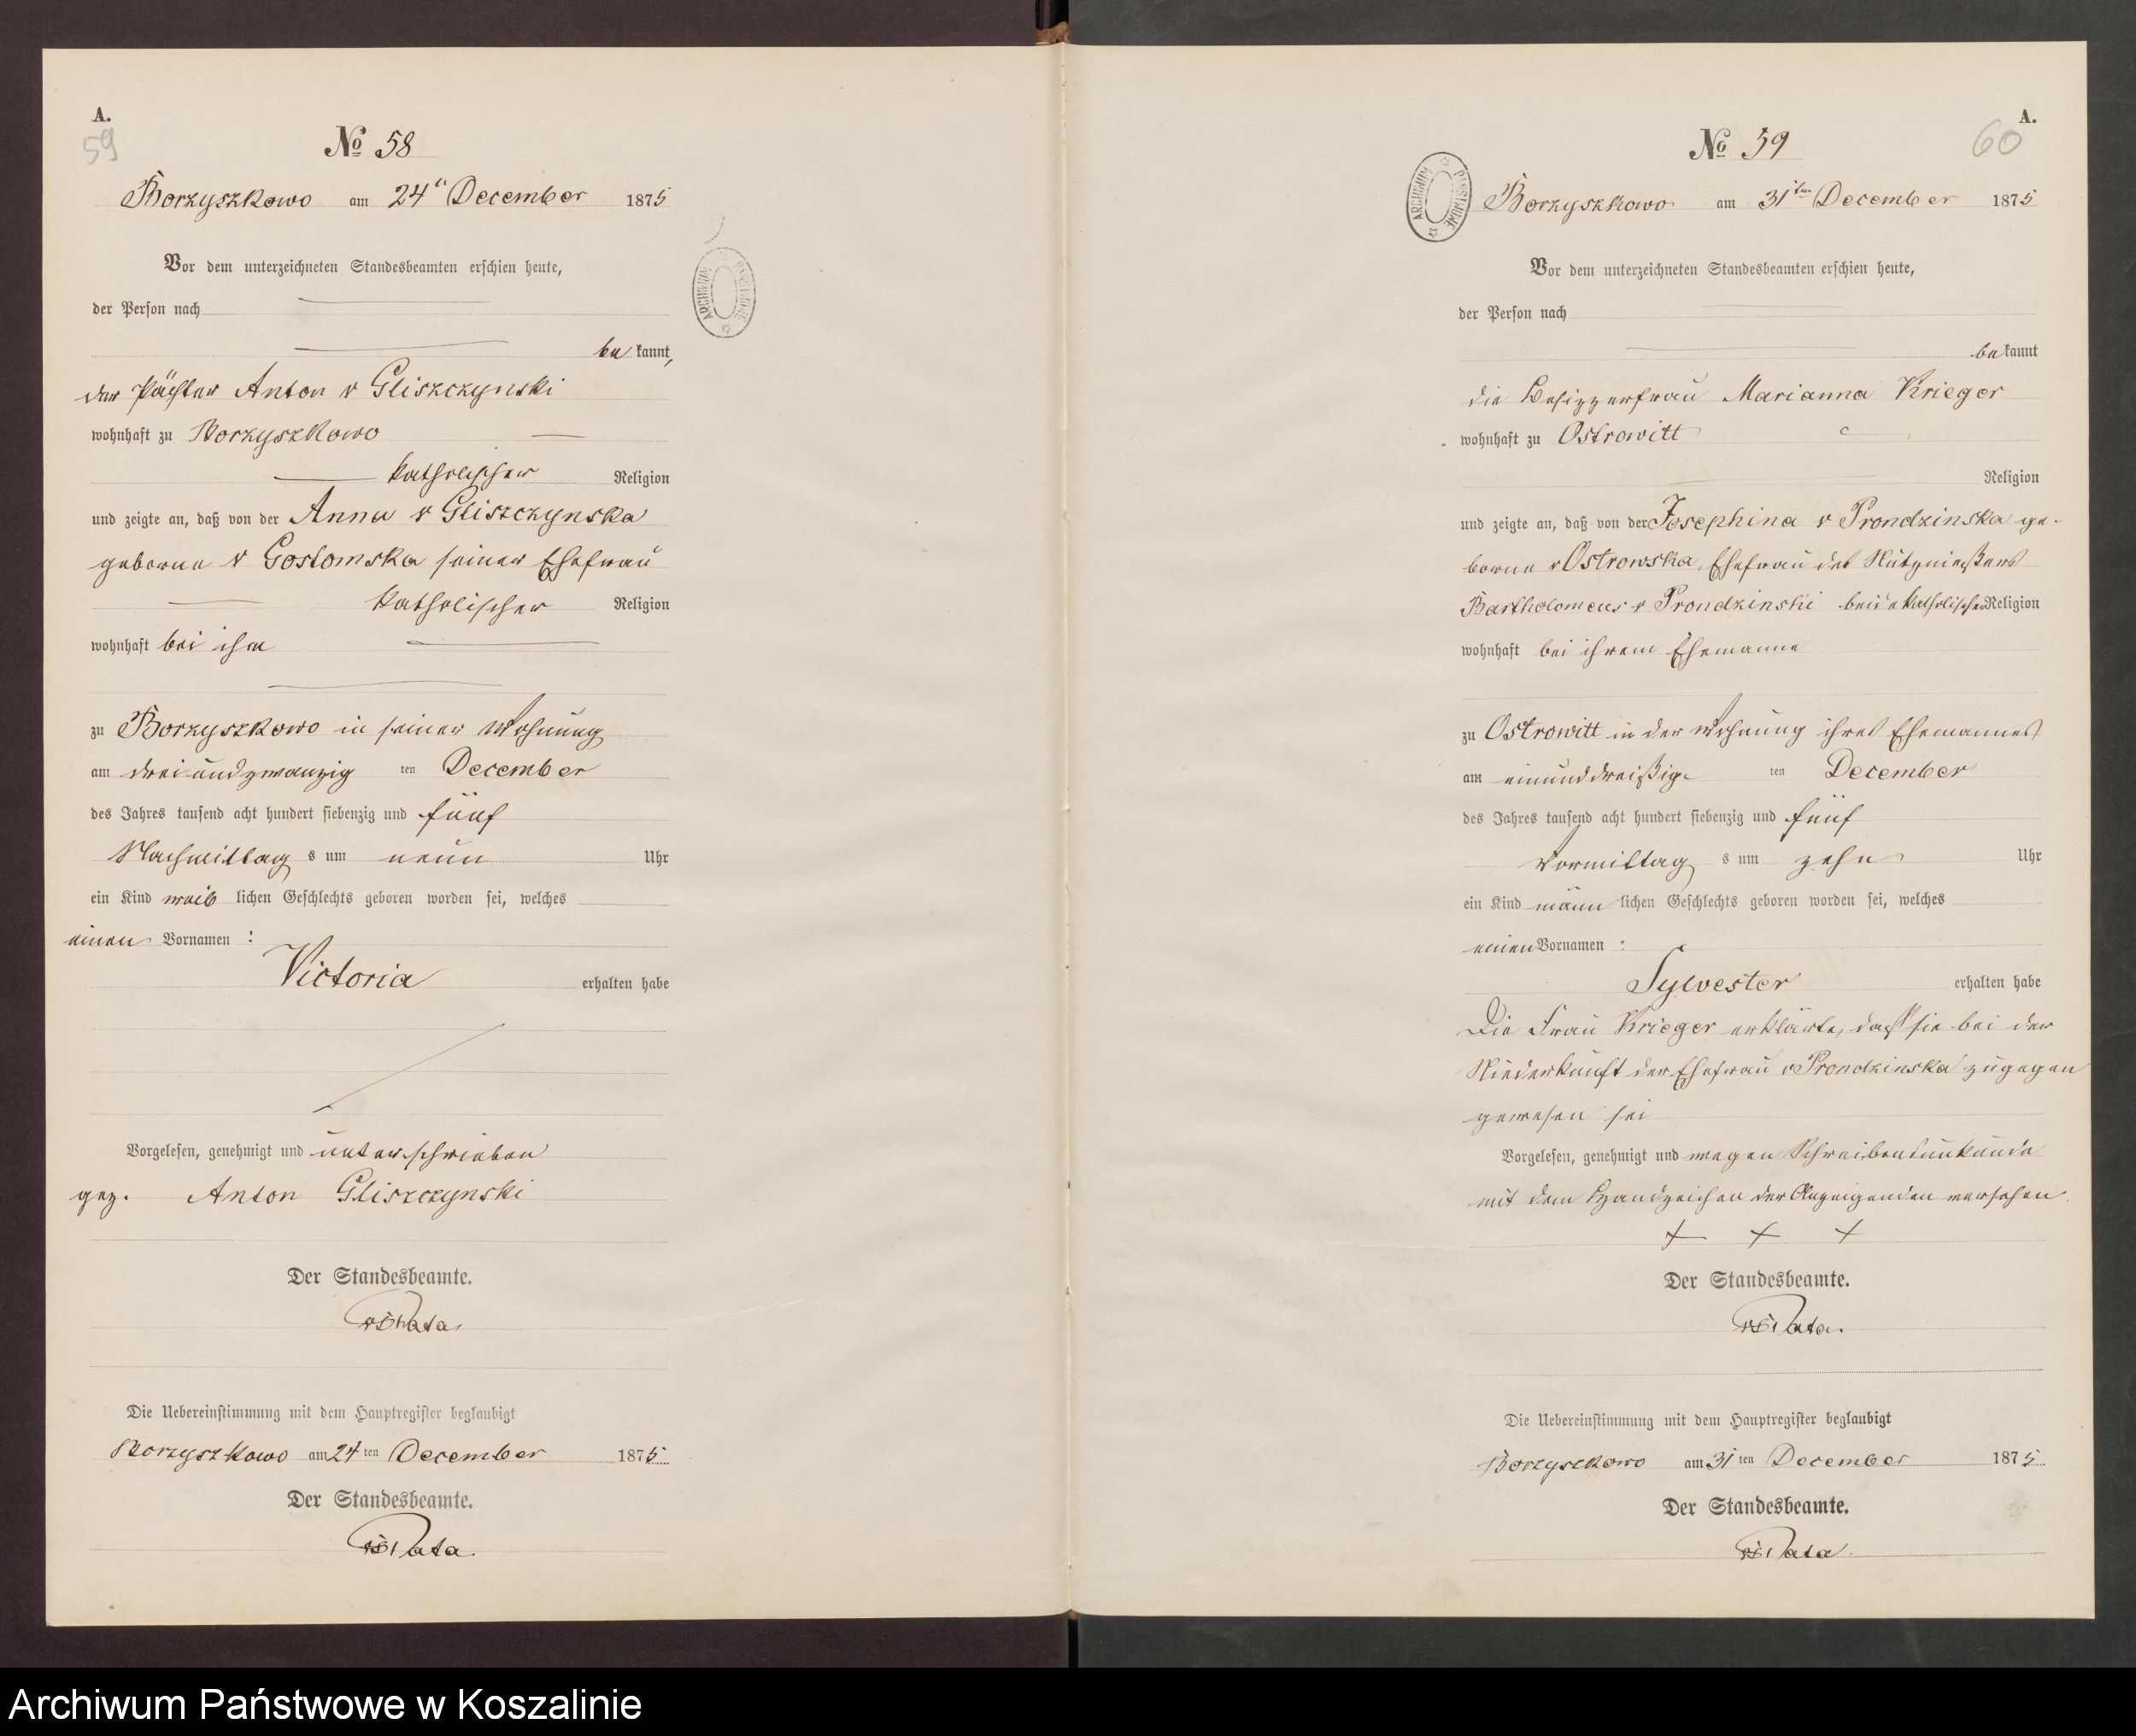 A.
59
No 58
Borzyszkowo am 24t December 1875
Vor dem unterzeichneten Standesbeamten erschien heute,
der Person nach
be kannt,
der Pächter Anton v Gliszczynski
wohnhaft zu Borzyszkowo
katholischer Religion
und zeigte an, daß von der Anna v Gliszczynska
geborne v Gostomska seiner Ehefrau
katholischer Religion
wohnhaft bei ihm
zu Borzyszkowo in seiner Wohnung
am dreiundzwanzig ten December
des Jahres tausend acht hundert siebenzig und fünf
Nachmittag s um neun Uhr
ein Kind weib lichen Geschlechts geboren worden sei, welches
einen Vornamen :
Victoria erhalten habe
Vorgelesen, genehmigt und unterschrieben
gez. Anton Gliszczynski
Der Standesbeamte.
Die Uebereinstimmung mit dem Hauptregister beglaubigt
Borzyszkowo am 24 ten December 1875
Der Standesbeamte.
ARCHIWUM PAŃSTWOWE
A.
60
No 59
ARCHIWUM PAŃSTWOWE
Borzyszkowo am 31ten December 1875
Vor dem unterzeichneten Standesbeamten erschien heute,
der Person nach
be kannt
die Besitzerfrau Marianna Krieger
wohnhaft zu Ostrowitt
Religion
und zeigte an, daß von der Josephina v Prondzinska ge-
borne v Ostrowska, Ehefrau des Nutznießers
Bartholomeus v Prondzinski beide katholischer Religion
wohnhaft bei ihrem Ehemanne
zu Ostrowitt in der Wohnung ihres Ehemannes
am einunddreißig ten December
des Jahres tausend acht hundert siebenzig und fünf
Vormittag s um zehn Uhr
ein Kind männ lichen Geschlechts geboren worden sei, welches
einen Vornamen :
Sylvester erhalten habe
Die Frau Krieger erklärte, daß sie bei der
Niederkunft der Ehefrau v Prondzinska zugegen
gewesen sei
Vorgelesen, genehmigt und wegen Schreibensunkunde
mit dem Handzeichen der Anzeigenden versehen.
+ + +
Der Standesbeamte.
Die Uebereinstimmung mit dem Hauptregister beglaubigt
Borzyszkowo am 31 ten December 1875
Der Standesbeamte.
Archiwum Państwowe w Koszalinie